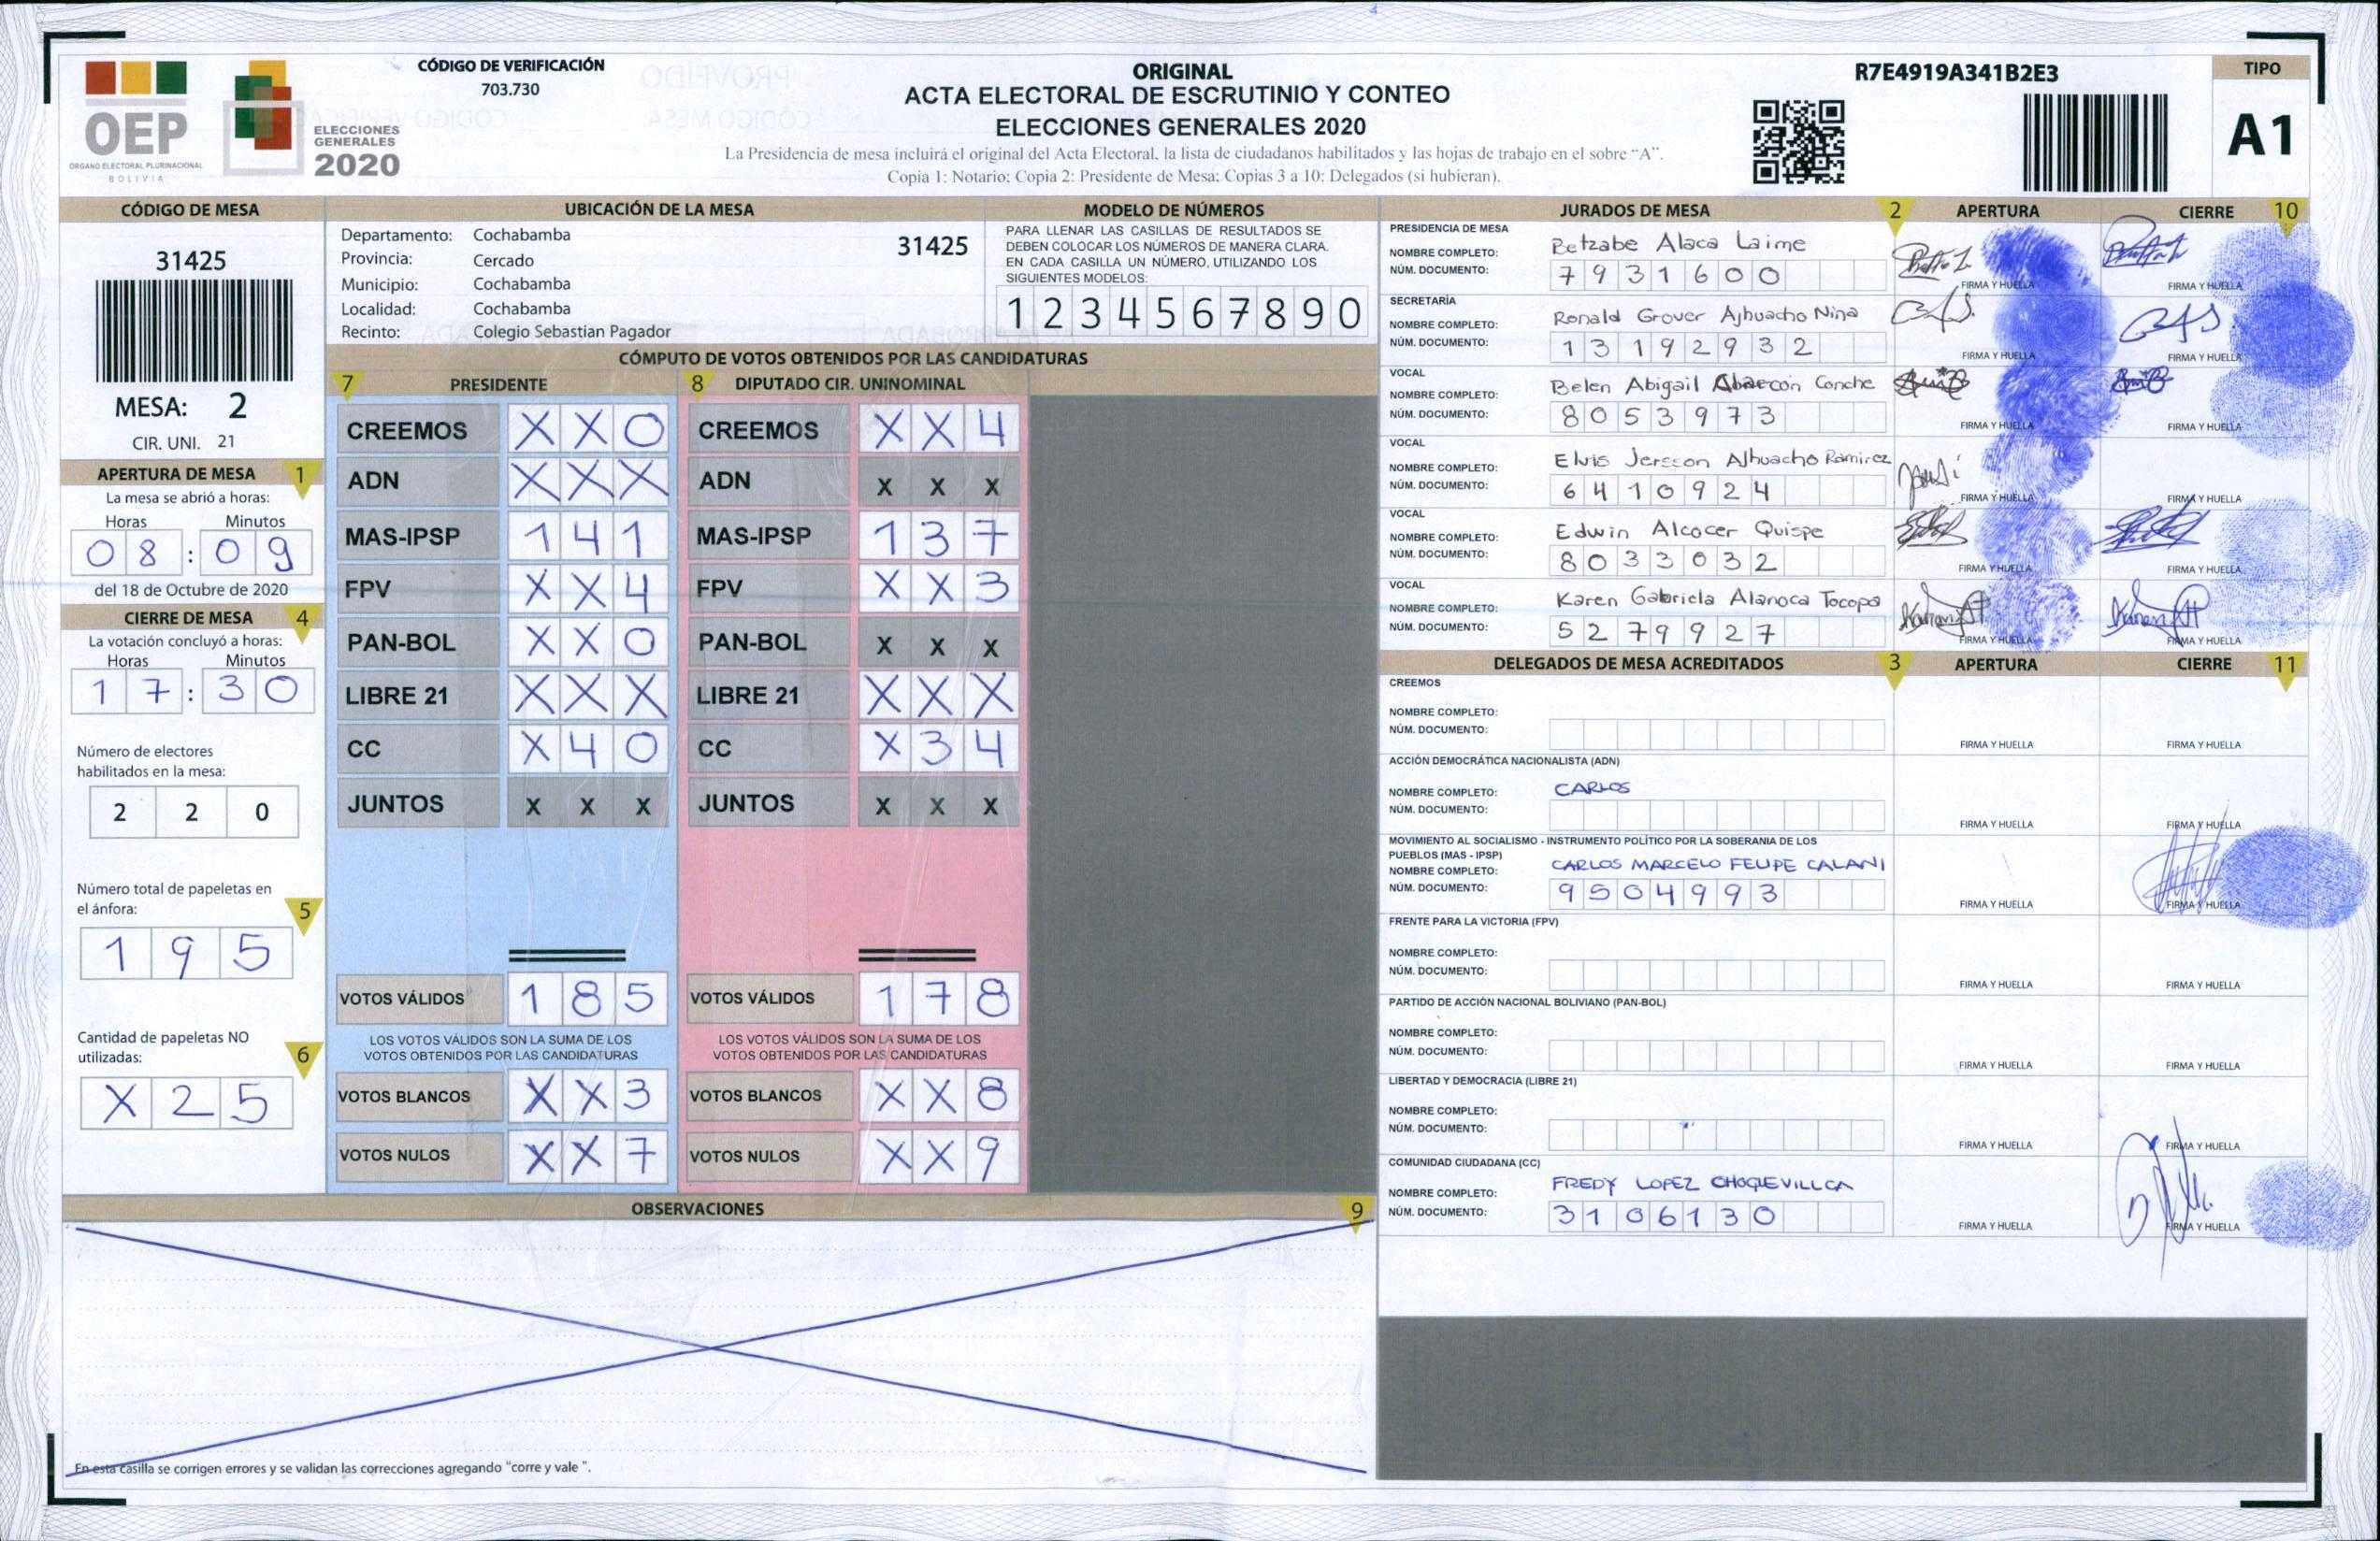 OEP
ÓRGANO ELECTORAL PLURINACIONAL
BOLIVIA
ELECCIONES
GENERALES
2020
CÓDIGO DE VERIFICACIÓN
703.730
ORIGINAL
ACTA ELECTORAL DE ESCRUTINIO Y CONTEO
ELECCIONES GENERALES 2020
La Presidencia de mesa incluirá el original del Acta Electoral, la lista de ciudadanos habilitados y las hojas de trabajo en el sobre “A”.
Copia 1: Notario; Copia 2: Presidente de Mesa; Copias 3 a 10: Delegados (si hubieran).
R7E4919A341B2E3
TIPO
A1
CÓDIGO DE MESA
31425
MESA: 2
CIR. UNI. 21
APERTURA DE MESA 1
La mesa se abrió a horas:
Horas Minutos
08:09
del 18 de Octubre de 2020
CIERRE DE MESA 4
La votación concluyó a horas:
Horas Minutos
17:30
Número de electores
habilitados en la mesa:
2 2 0
Número total de papeletas en
el ánfora: 5
1 9 5
Cantidad de papeletas NO
utilizadas: 6
X 2 5
UBICACIÓN DE LA MESA
Departamento: Cochabamba 31425
Provincia: Cercado
Municipio: Cochabamba
Localidad: Cochabamba
Recinto: Colegio Sebastian Pagador
MODELO DE NÚMEROS
PARA LLENAR LAS CASILLAS DE RESULTADOS SE
DEBEN COLOCAR LOS NÚMEROS DE MANERA CLARA.
EN CADA CASILLA UN NÚMERO, UTILIZANDO LOS
SIGUIENTES MODELOS:
1 2 3 4 5 6 7 8 9 0
CÓMPUTO DE VOTOS OBTENIDOS POR LAS CANDIDATURAS
7 PRESIDENTE 8 DIPUTADO CIR. UNINOMINAL
CREEMOS X X 0 CREEMOS X X 4
ADN X X X ADN X X X
MAS-IPSP 1 4 1 MAS-IPSP 1 3 7
FPV X X 4 FPV X X 3
PAN-BOL X X 0 PAN-BOL X X X
LIBRE 21 X X X LIBRE 21 X X X
CC X 4 0 CC X 3 4
JUNTOS X X X JUNTOS X X X
VOTOS VÁLIDOS 1 8 5 VOTOS VÁLIDOS 1 7 8
LOS VOTOS VÁLIDOS SON LA SUMA DE LOS LOS VOTOS VÁLIDOS SON LA SUMA DE LOS
VOTOS OBTENIDOS POR LAS CANDIDATURAS VOTOS OBTENIDOS POR LAS CANDIDATURAS
VOTOS BLANCOS X X 3 VOTOS BLANCOS X X 8
VOTOS NULOS X X 7 VOTOS NULOS X X 9
OBSERVACIONES 9
En esta casilla se corrigen errores y se validan las correcciones agregando “corre y vale ”.
JURADOS DE MESA 2 APERTURA CIERRE 10
PRESIDENCIA DE MESA
NOMBRE COMPLETO: Betzabe Alaca Laime
NÚM. DOCUMENTO: 7931600
FIRMA Y HUELLA FIRMA Y HUELLA
SECRETARÍA
NOMBRE COMPLETO: Ronald Grover Ajhuacho Nina
NÚM. DOCUMENTO: 13192932
FIRMA Y HUELLA FIRMA Y HUELLA
VOCAL
NOMBRE COMPLETO: Belen Abigail Conche
NÚM. DOCUMENTO: 8053973
FIRMA Y HUELLA FIRMA Y HUELLA
VOCAL
NOMBRE COMPLETO: Elvis Jersson Ajhuacho Ramirez
NÚM. DOCUMENTO: 6410924
FIRMA Y HUELLA FIRMA Y HUELLA
VOCAL
NOMBRE COMPLETO: Edwin Alcocer Quispe
NÚM. DOCUMENTO: 8033032
FIRMA Y HUELLA FIRMA Y HUELLA
VOCAL
NOMBRE COMPLETO: Karen Gabriela Alanoca Tocopa
NÚM. DOCUMENTO: 5279927
FIRMA Y HUELLA FIRMA Y HUELLA
DELEGADOS DE MESA ACREDITADOS 3 APERTURA CIERRE 11
CREEMOS
NOMBRE COMPLETO:
NÚM. DOCUMENTO:
FIRMA Y HUELLA FIRMA Y HUELLA
ACCIÓN DEMOCRÁTICA NACIONALISTA (ADN)
NOMBRE COMPLETO: CARLOS
NÚM. DOCUMENTO:
FIRMA Y HUELLA FIRMA Y HUELLA
MOVIMIENTO AL SOCIALISMO - INSTRUMENTO POLÍTICO POR LA SOBERANIA DE LOS
PUEBLOS (MAS - IPSP)
NOMBRE COMPLETO: CARLOS MARCELO FELIPE CALANI
NÚM. DOCUMENTO: 9504993
FIRMA Y HUELLA FIRMA Y HUELLA
FRENTE PARA LA VICTORIA (FPV)
NOMBRE COMPLETO:
NÚM. DOCUMENTO:
FIRMA Y HUELLA FIRMA Y HUELLA
PARTIDO DE ACCIÓN NACIONAL BOLIVIANO (PAN-BOL)
NOMBRE COMPLETO:
NÚM. DOCUMENTO:
FIRMA Y HUELLA FIRMA Y HUELLA
LIBERTAD Y DEMOCRACIA (LIBRE 21)
NOMBRE COMPLETO:
NÚM. DOCUMENTO:
FIRMA Y HUELLA FIRMA Y HUELLA
COMUNIDAD CIUDADANA (CC)
NOMBRE COMPLETO: FREDY LOPEZ CHOQUEVILLCA
NÚM. DOCUMENTO: 3106130
FIRMA Y HUELLA FIRMA Y HUELLA